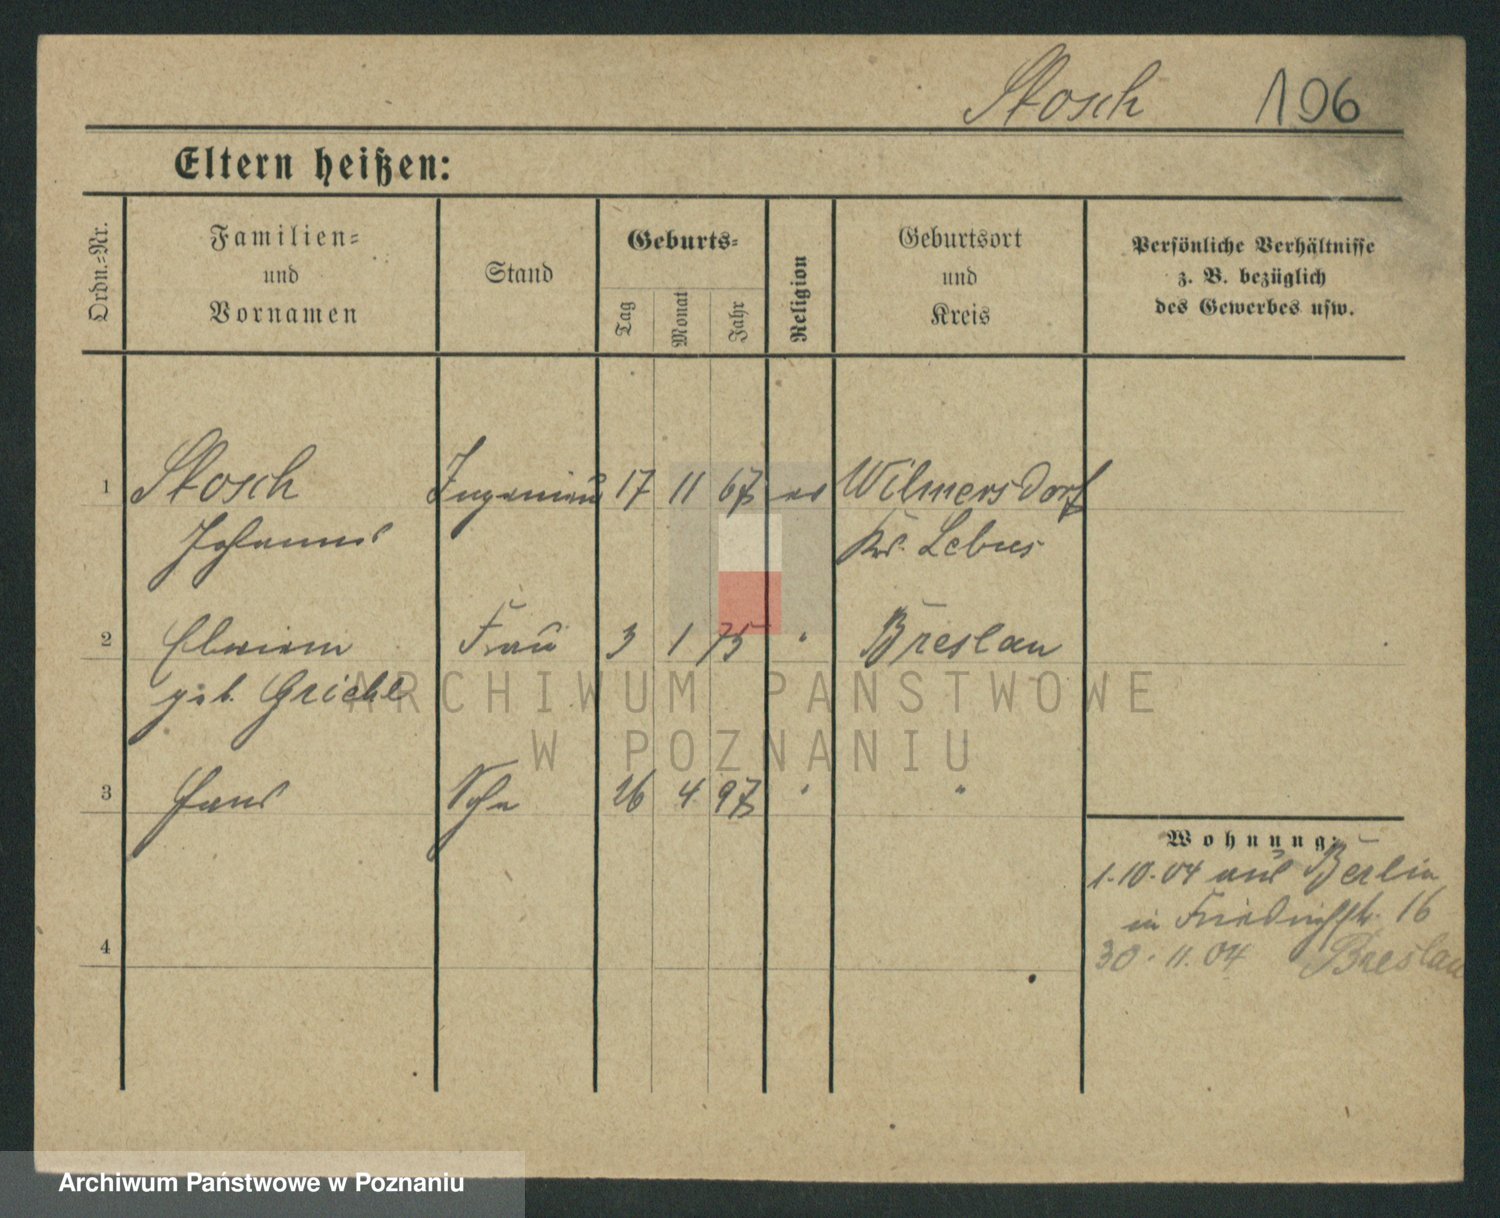 Stosch 106
Eltern heißen:
Ordn.-Nr.
Familien-
und
Vornamen
Stand
Geburts-
Tag
Monat
Jahr
Religion
Geburtsort
und
Kreis
Persönliche Verhältnisse
z. B. bezüglich
des Gewerbes usw.
1 Stosch Ingenieur 17 11 67 ev Wilmersdorf
Johannes Krs. Lebus
2 Frau 3 1 75 " Breslau
geb.
3 Hans Sohn 26 4 97 " "
Wohnung:
1.10.04 aus Berlin
in Friedrichstr. 16
30.11.04 Breslau
4
ARCHIWUM PAŃSTWOWE
W POZNANIU
Archiwum Państwowe w Poznaniu